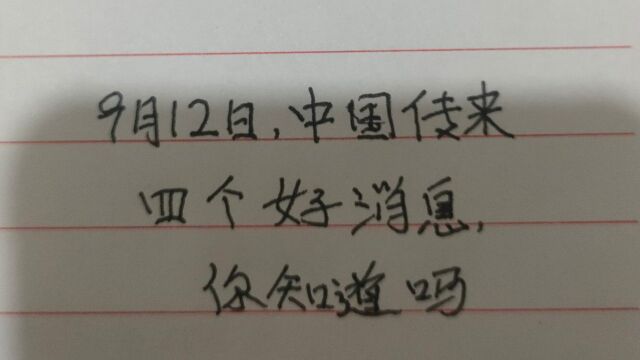 9月12日,中国传来
四个好消息,
你知道吗